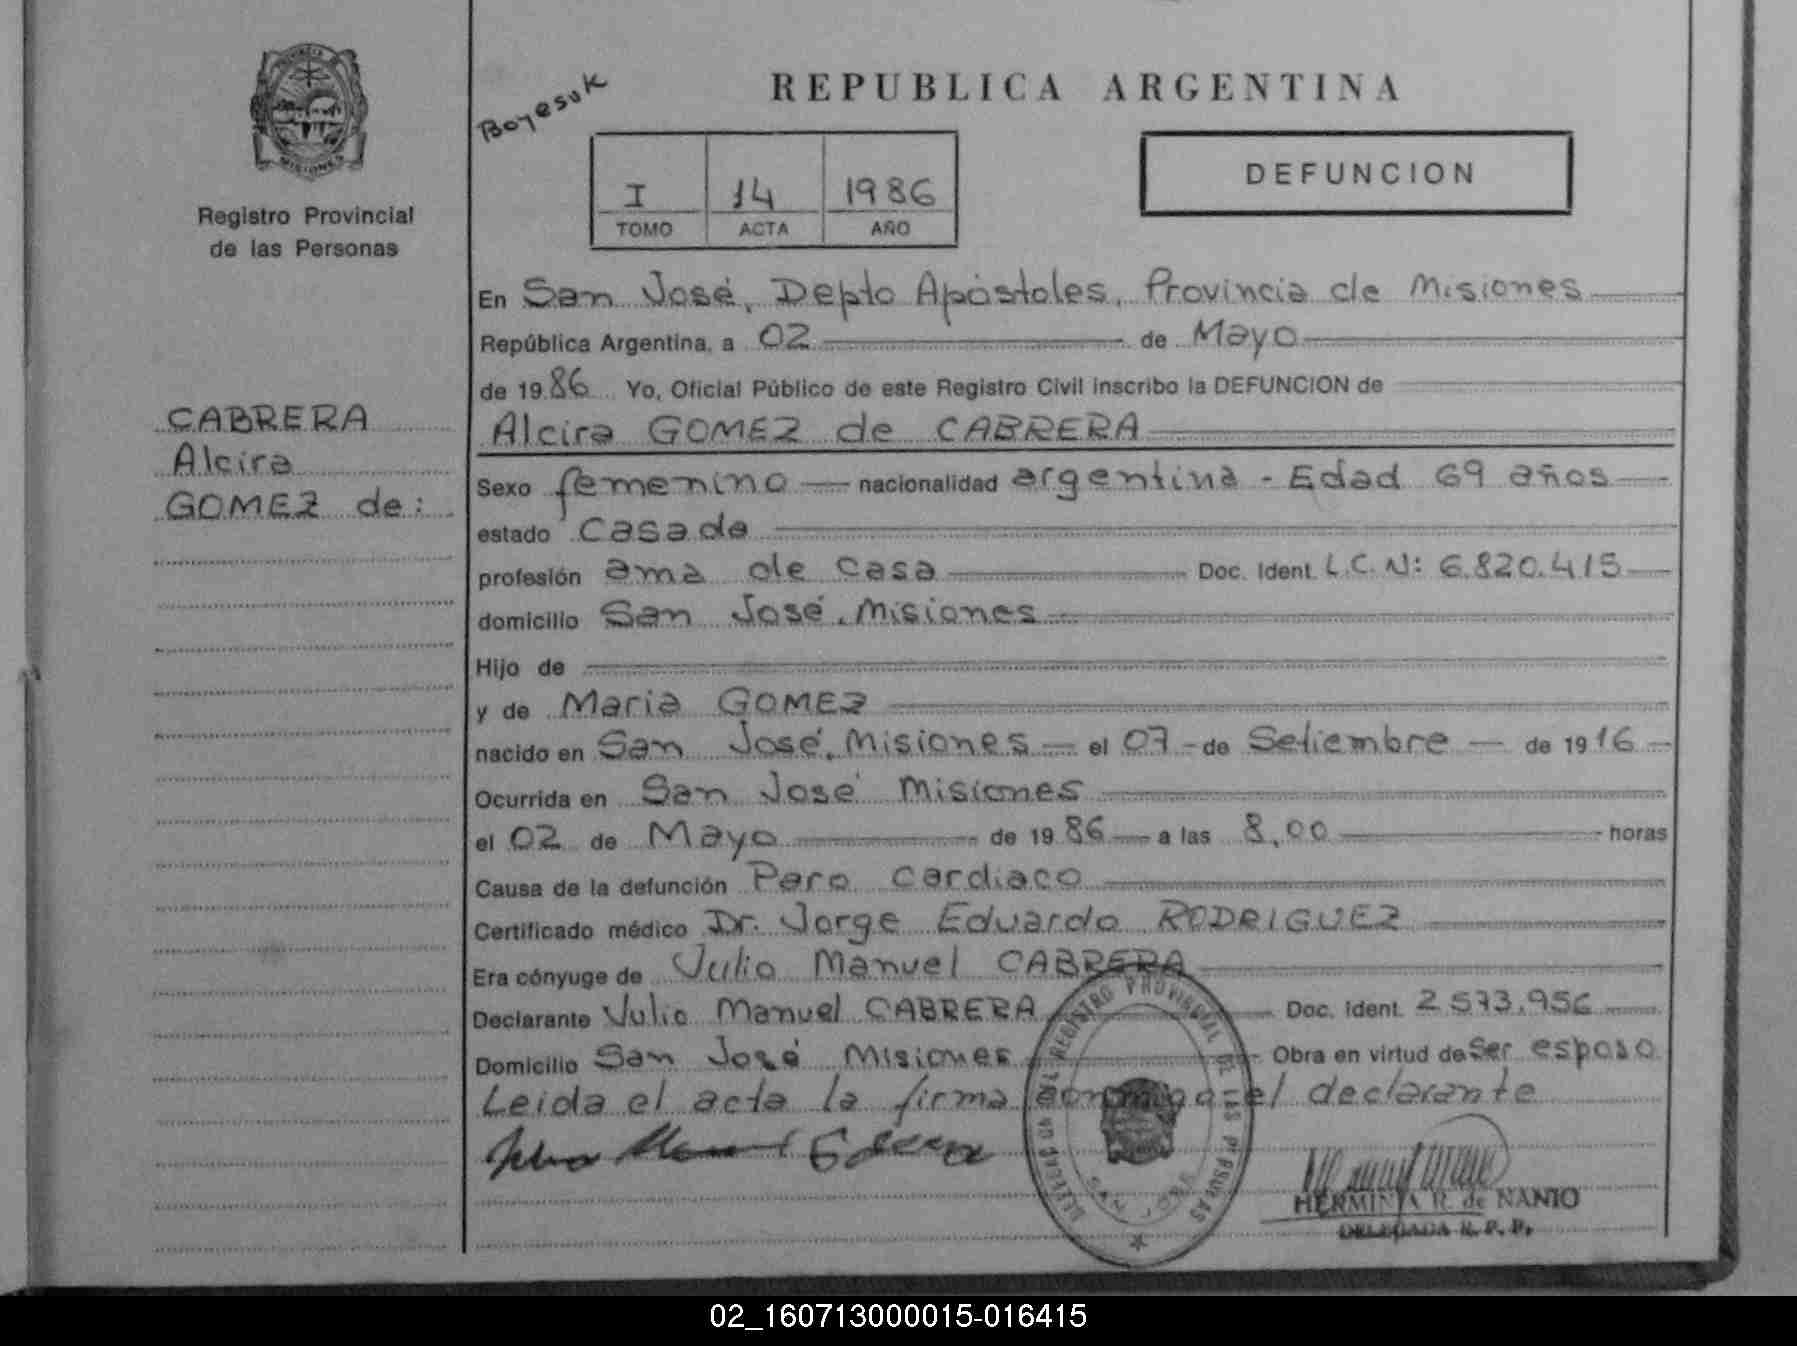 PROVINCIA DE
MISIONES
Registro Provincial
de las Personas
CABRERA
Alcira
GOMEZ de:
Boyesuk
REPUBLICA ARGENTINA
I 14 1986
TOMO ACTA AÑO
DEFUNCION
En San José, Depto Apóstoles, Provincia de Misiones
República Argentina, a 02 de Mayo
de 1986 Yo, Oficial Público de este Registro Civil inscribo la DEFUNCION de
Alcira GOMEZ de CABRERA
Sexo femenino nacionalidad argentina - Edad 69 años
estado casada
profesión ama de casa Doc. Ident. L.C. N: 6.820.415
domicilio San José, Misiones
Hijo de
y de Maria GOMEZ
nacido en San José, Misiones el 07 de Setiembre de 1916
Ocurrida en San José Misiones
el 02 de Mayo de 1986 a las 8,00 horas
Causa de la defunción Paro cardiaco
Certificado médico Dr. Jorge Eduardo RODRIGUEZ
Era cónyuge de Julio Manuel CABRERA
Declarante Julio Manuel CABRERA Doc. Ident. 2.573.956
Domicilio San José Misiones Obra en virtud de Ser esposo
Leida el acta la firma conmigo el declarante
REGISTRO PROVINCIAL DE LAS PERSONAS
HERMINIA R. de NANIO
DELEGADA R. P. P.
02_160713000015-016415